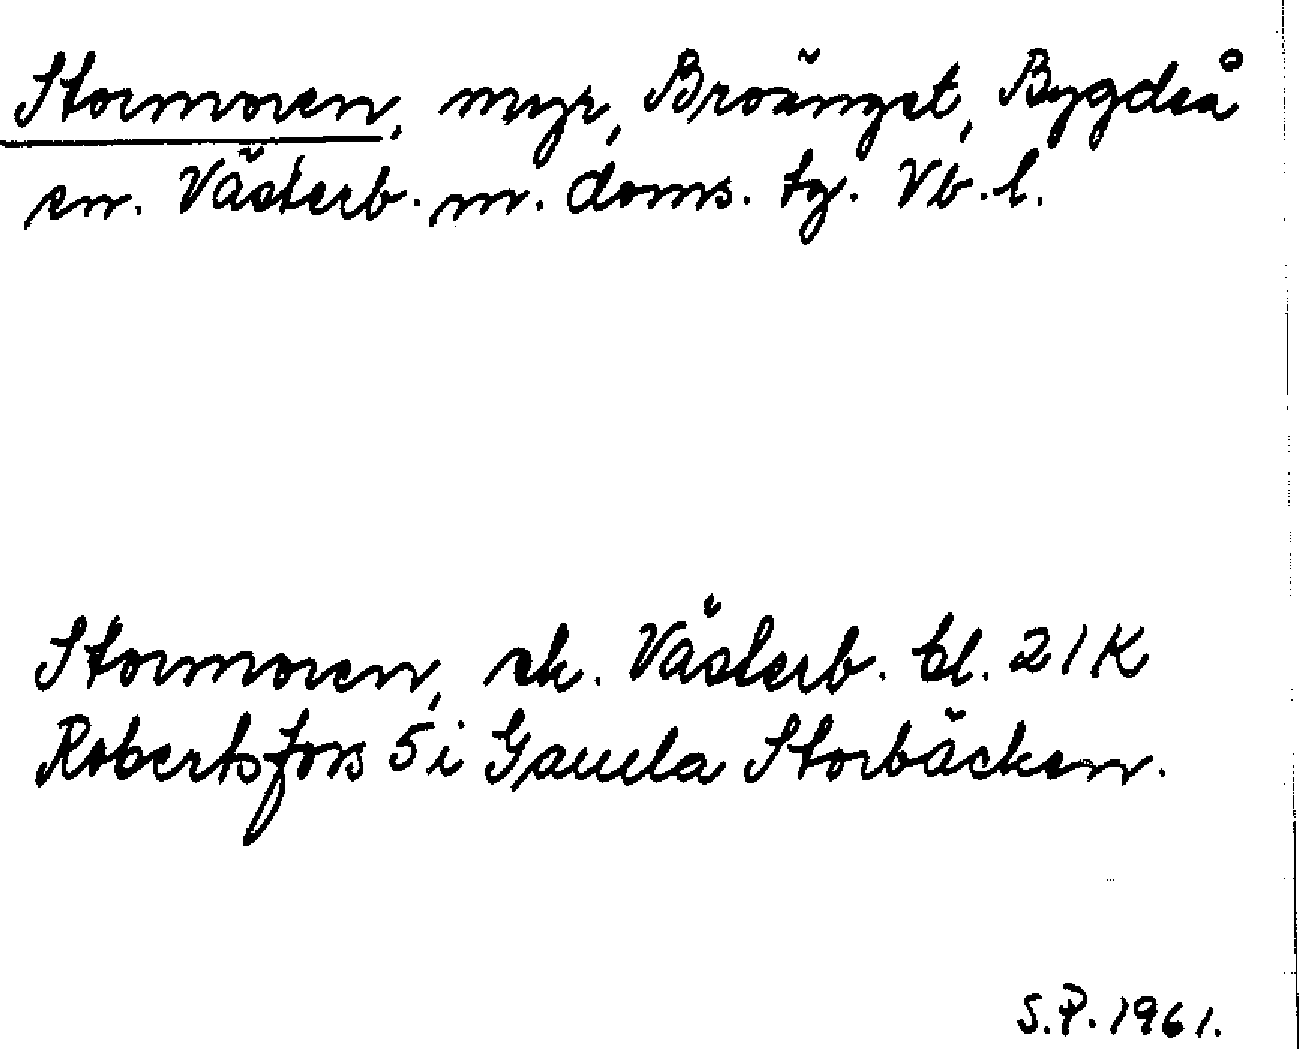 Stormoren, myr, Broänget, Bygdeå
sn. Västerb. m. doms. tg. Vb. l.
Stormoren, ek. Västerb. bl. 21K
Robertsfors 5 i Gamla Storbäcken.
S.P. 1961.